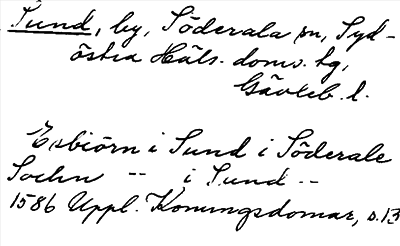 Sund, by, Söderala sn, Syd-
östra Häls. doms. tg,
Gävleb. l.
Esbiörn i Sund i Söderale
Sochn -- i Sund --
1586 Uppl. Konungsdomar, s. 13